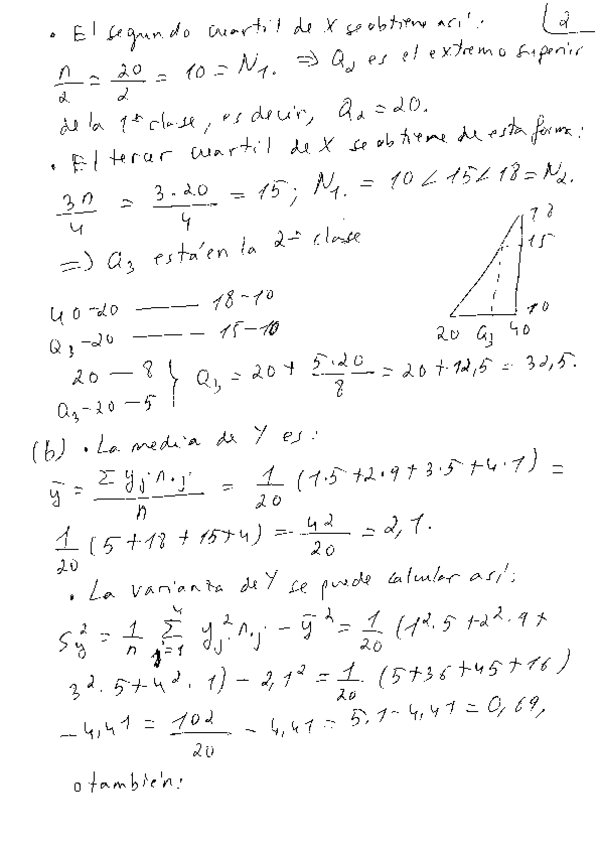 2
• El segundo cuartil de X se obtiene así:
n/2 = 20/2 = 10 = N₁. ⇒ Q₂ es el extremo superior
de la 1ª clase, es decir, Q₂ = 20.
• El tercer cuartil de X se obtiene de esta forma:
3n/4 = 3·20/4 = 15; N₁. = 10 < 15 < 18 = N₂.
⇒ Q₃ está en la 2ª clase
18
15
10
20 Q₃ 40
40-20 —— 18-10
Q₃-20 —— 15-10
20 — 8
Q₃-20 — 5 } Q₃ = 20 + 5·20/8 = 20 + 12,5 = 32,5.
(b) • La media de Y es:
ȳ = Σ yⱼ n.ⱼ / n = 1/20 (1·5+2·9+3·5+4·1) =
1/20 (5+18+15+4) = 42/20 = 2,1.
• La varianza de Y se puede calcular así:
S²y = 1/n Σ⁴ⱼ₌₁ yⱼ² n.ⱼ - ȳ² = 1/20 (1²·5+2²·9+
3²·5+4²·1) - 2,1² = 1/20 (5+36+45+16)
- 4,41 = 102/20 - 4,41 = 5,1 - 4,41 = 0,69,
o también: